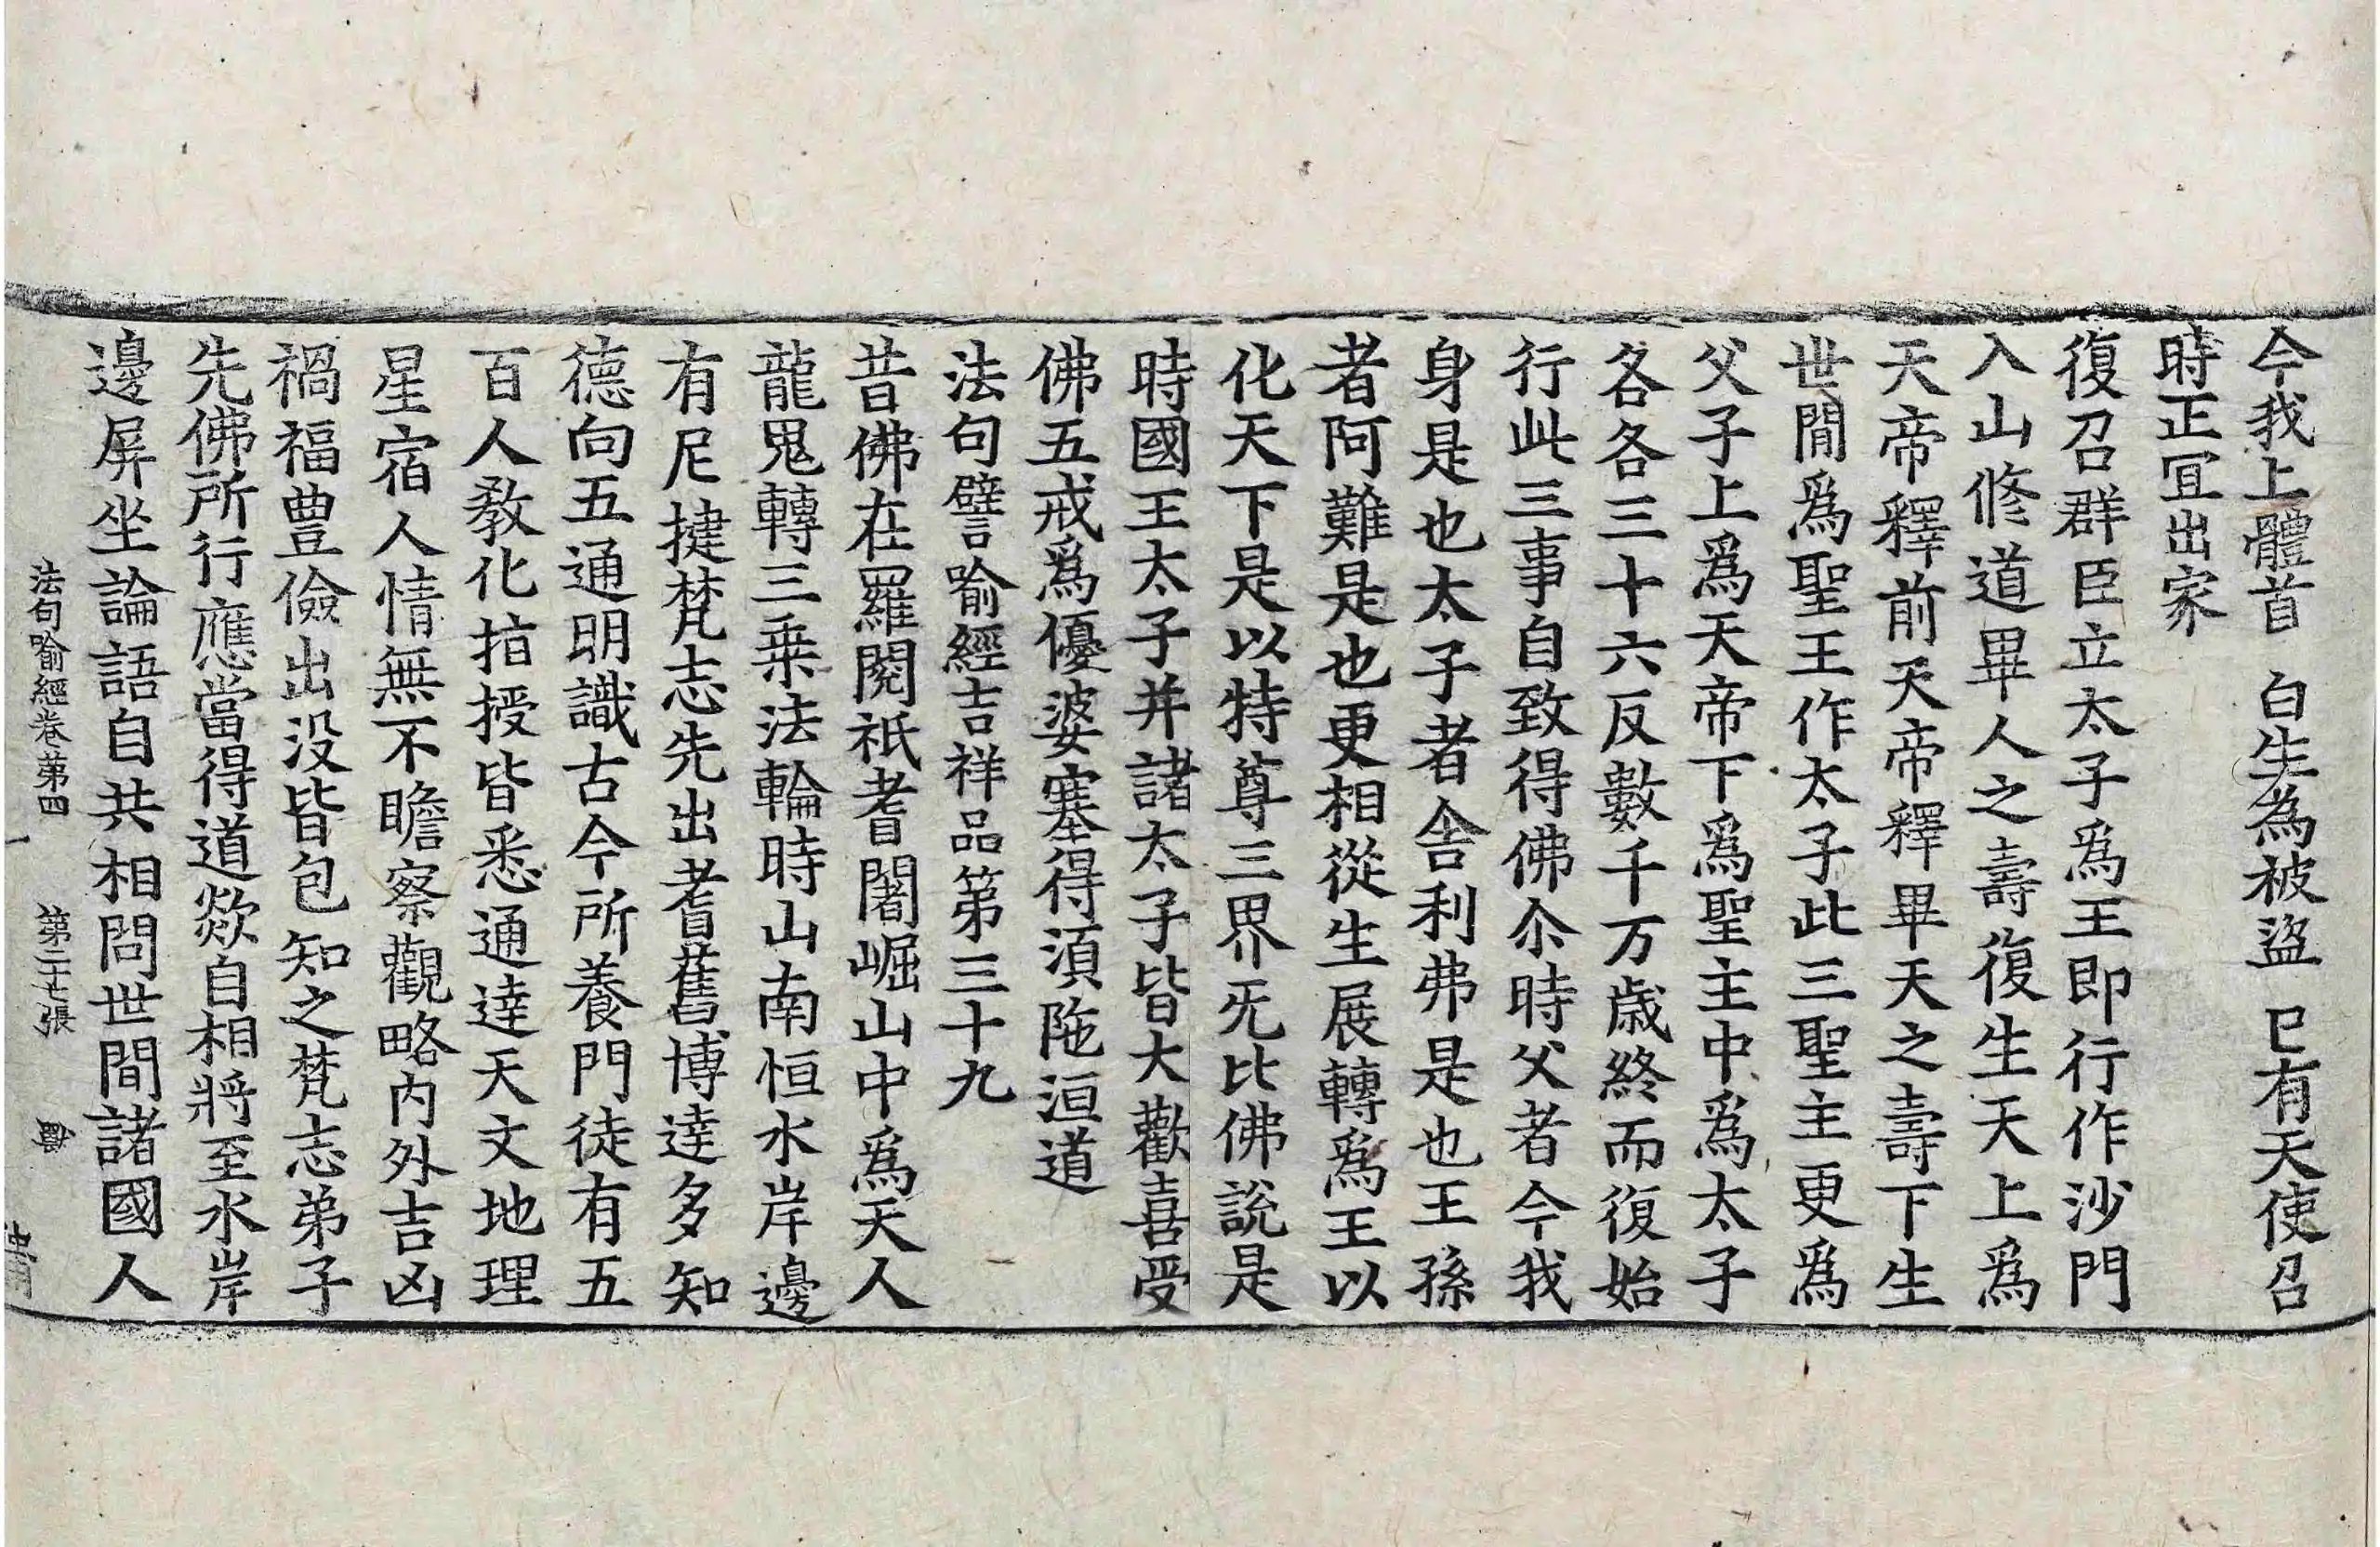 今我上體首　白生為被盜　已有天使召
時正冝出家
復召群臣立太子爲王即行作沙門
入山修道畢人之壽復生天上爲
天帝釋前天帝釋畢天之壽下生
世閒爲聖王作太子此三聖主更爲
父子上爲天帝下爲聖主中爲太子
各各三十六反數千万歲終而復始
行此三事自致得佛尒時父者今我
身是也太子者舍利弗是也王孫
者阿難是也更相從生展轉爲王以
化天下是以特尊三界旡比佛說是
時國王太子并諸太子皆大歡喜受
佛五戒爲優婆塞得湏陁洹道
法句譬喻經吉祥品第三十九
昔佛在羅閱祇耆闍崛山中爲天人
龍鬼轉三乗法輪時山南恒水岸邊
有尼揵梵志先出耆舊博達多知
德向五通明識古今所養門徒有五
百人教化指授皆悉通達天文地理
星宿人情無不瞻察觀略內外吉凶
禍福豊儉出没皆包知之梵志弟子
先佛所行應當得道欻自相將至水岸
邊屏坐論語自共相問世間諸國人
法句喻經卷第四　第二十七張